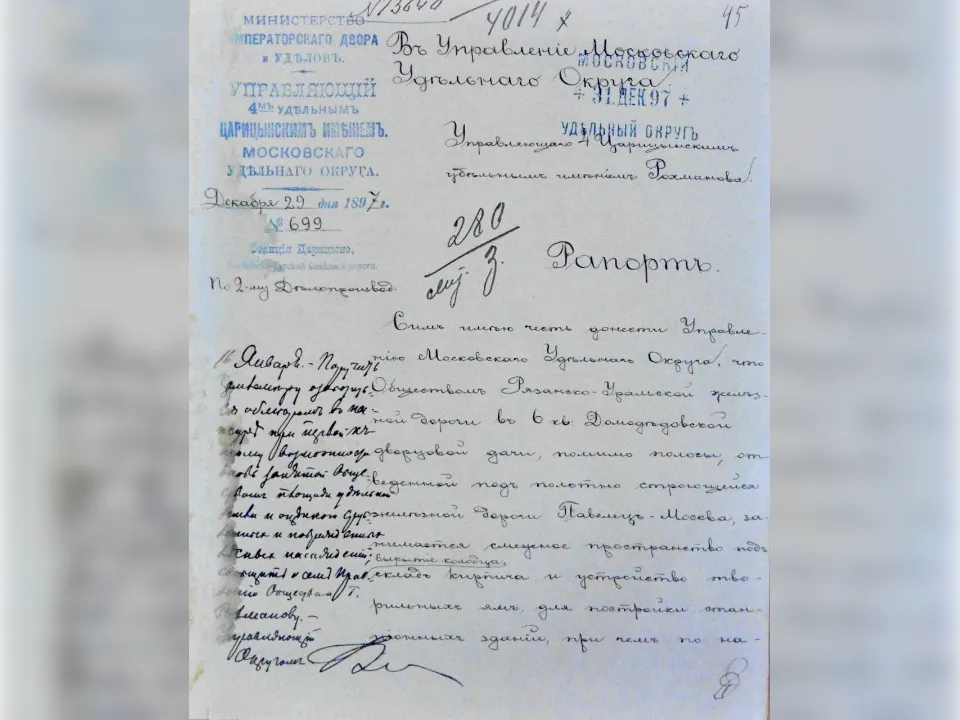 №13640
4014 х
45
МИНИСТЕРСТВО
ИМПЕРАТОРСКАГО ДВОРА
и УДѢЛОВЪ.
УПРАВЛЯЮЩІЙ
4МЪ УДѢЛЬНЫМЪ
ЦАРИЦЫНСКИМЪ ИМѢНІЕМЪ.
МОСКОВСКАГО
УДѢЛЬНАГО ОКРУГА.
Декабря 29 дня 1897 г.
№ 699
Станція Царицыно,
желѣзной дороги.
По 2-му Дѣлопроизвод.
Въ Управленіе Московскаго
Удѣльнаго Округа
МОСКОВСКІЙ
+ 31 ДЕК 97 +
УДѢЛЬНЫЙ ОКРУГЪ
Управляющаго 4 Царицынскимъ
удѣльнымъ имѣніемъ Рохманова
280
3.
Рапортъ.
Симъ имѣю честь донести Управле-
нію Московскаго Удѣльнаго Округа, что
Обществомъ Рязанско-Уральской желѣз-
ной дороги въ 6 кв. Домодѣдовской
дворцовой дачи, помимо полосы, от
веденной подъ полотно строющейся
желѣзной дороги Павелецъ-Мосва, за-
нимается смежное пространство подъ
вырытіе колодца,
складъ кирпича и устройство тво-
рильныхъ ямъ, для постройки стан-
ціонныхъ зданій, при чемъ по на-
16 Январъ. - Поручить
при первой къ
площади удѣльной
и оцѣнкой
насажденій;
о семъ Прав
Общества и Г.
Рохманову. -
Управляющій
Округомъ